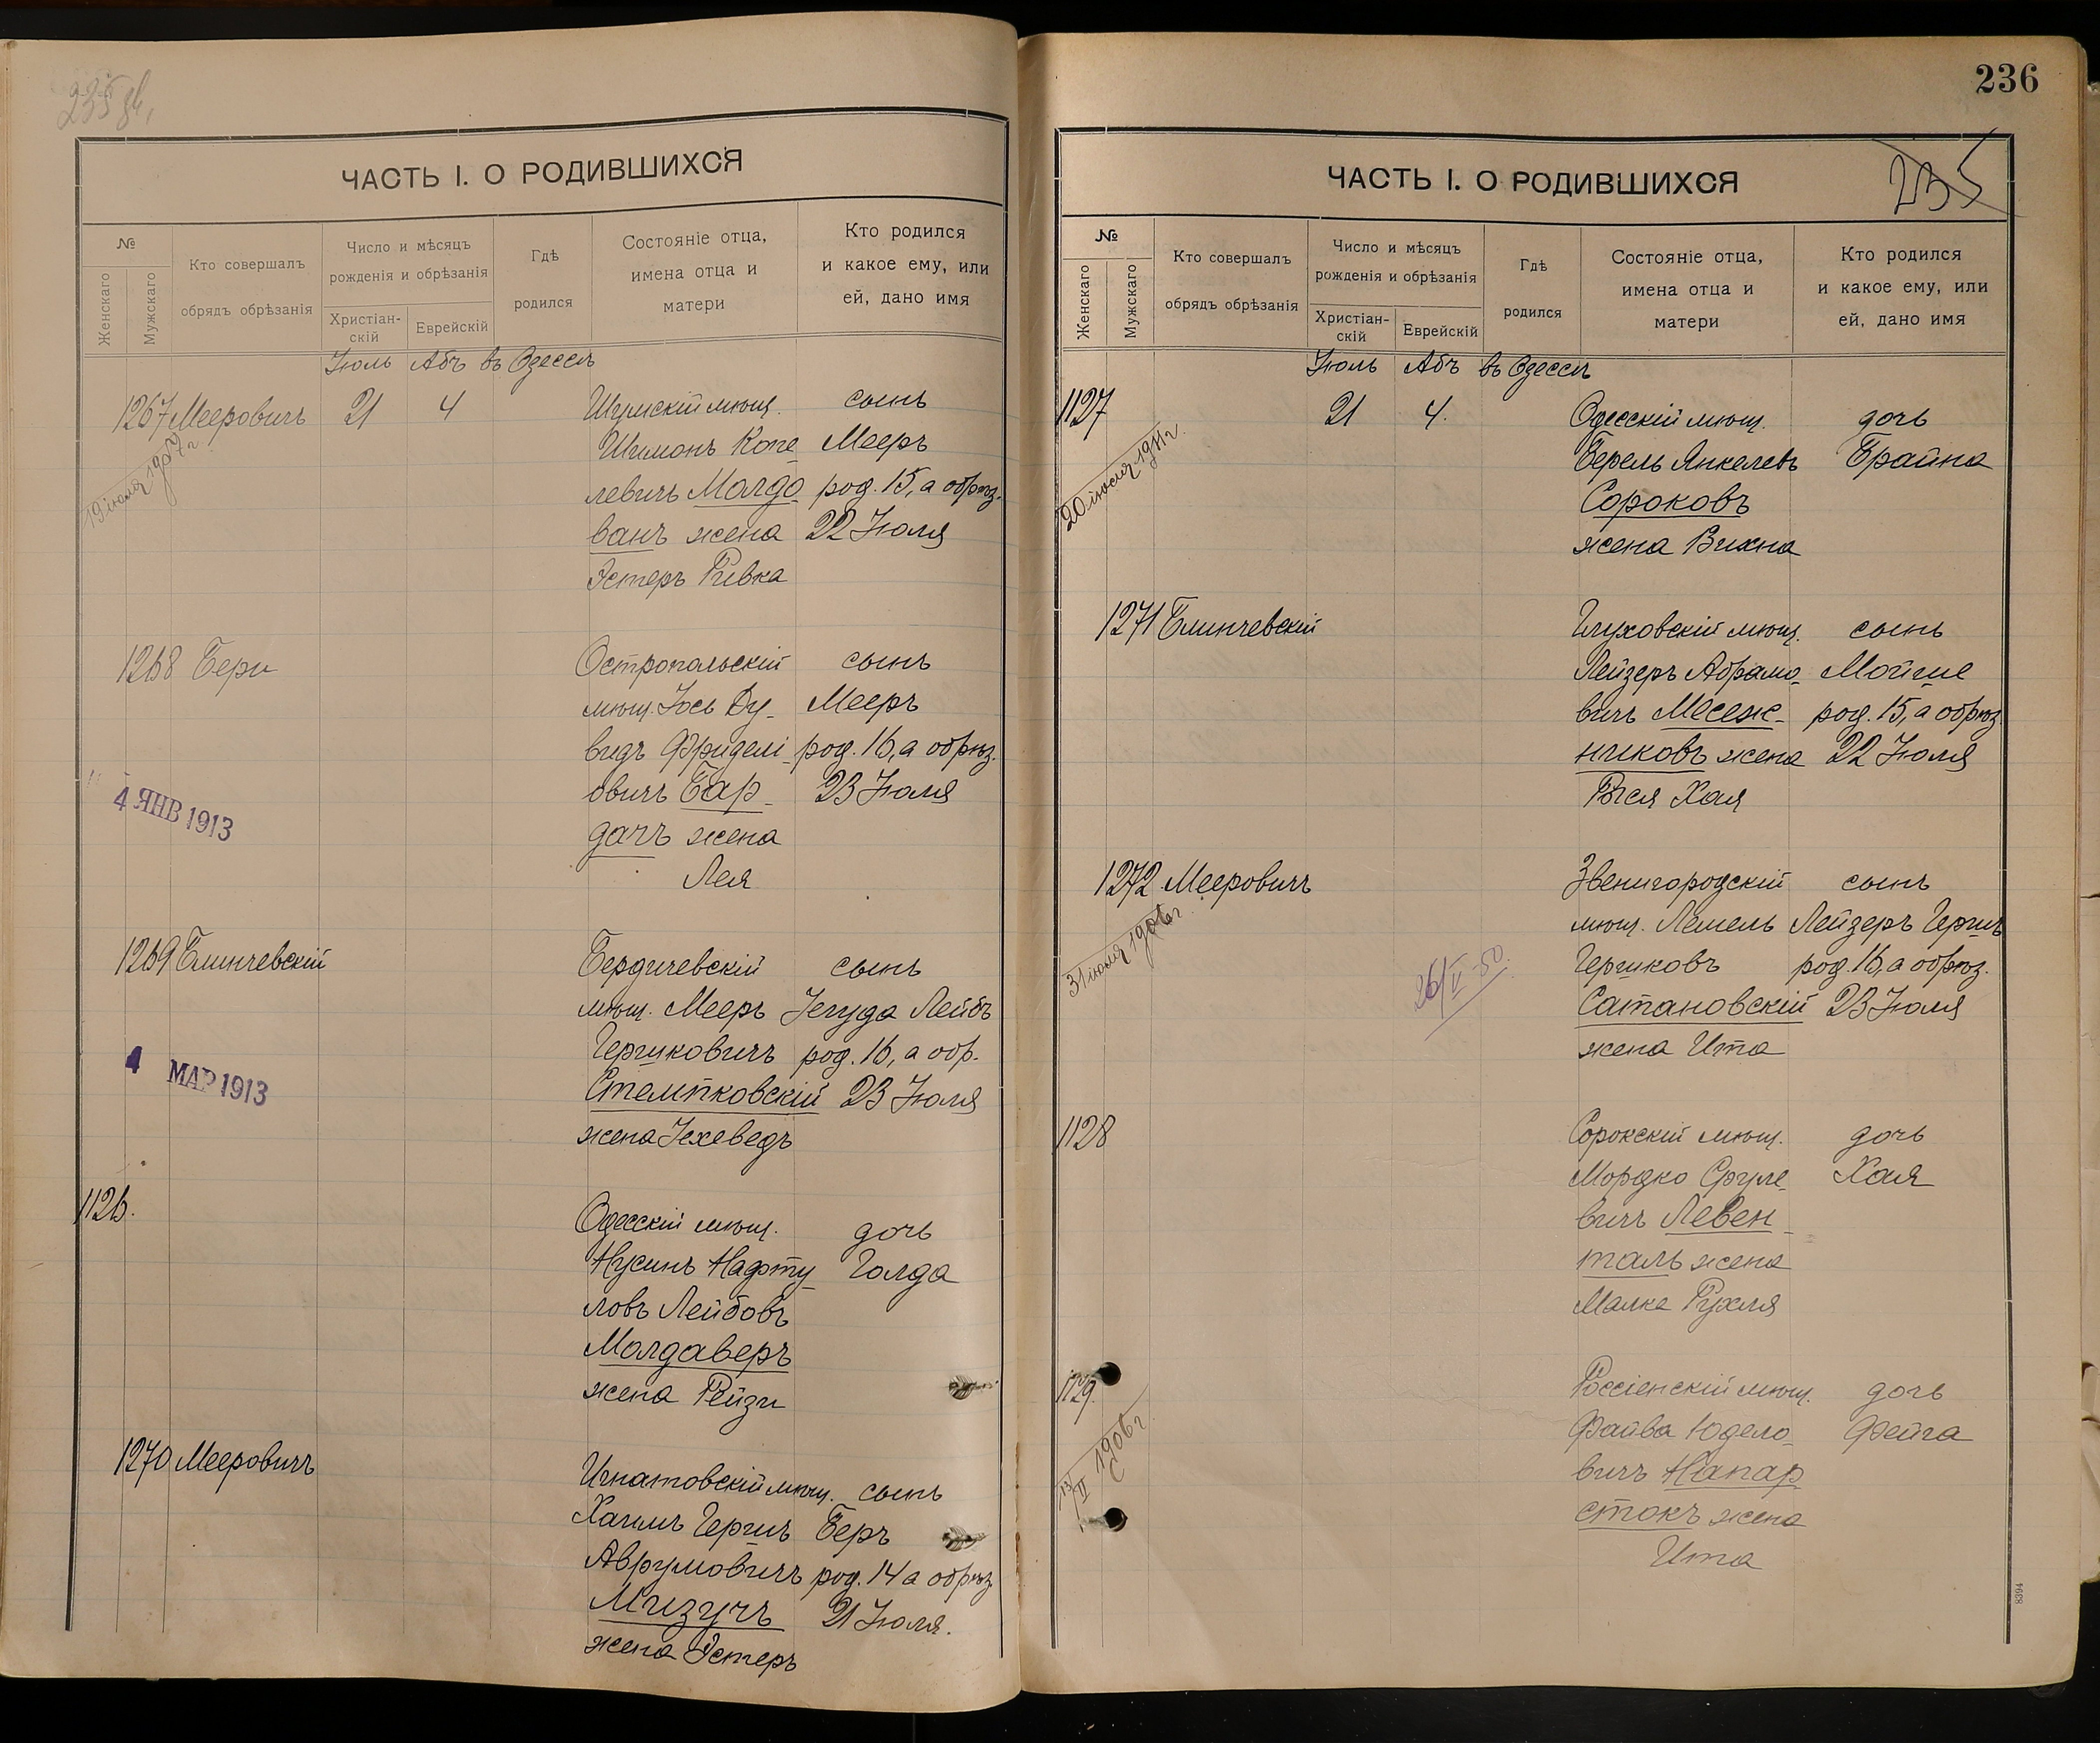 235 об.
ЧАСТЬ I. О РОДИВШИХСЯ
№
Женскаго
Мужскаго
Кто совершалъ
обрядъ обрѣзанія
Число и мѣсяцъ
рожденія и обрѣзанія
Христіан-
скій
Еврейскій
Гдѣ
родился
Состояніе отца,
имена отца и
матери
Кто родился
и какое ему, или
ей, дано имя
Іюль Абъ въ Одессѣ
1267 Мееровичъ 21 4 Шумскій мѣщ. сынъ
Шимонъ Копе- Мееръ
левичъ Молдо- род. 15, а обрѣз.
ванъ жена 22 Іюля
Эстеръ Ривка
19 іюля 1907 г.
1268 Бери Остропольскій сынъ
мѣщ. Іось Ду- Мееръ
видъ Фриделі- род. 16, а обрѣз.
овичъ Бар- 23 Іюля
дачъ жена
Лея
4 ЯНВ 1913
1269 Блинчевскій Бердичевскій сынъ
мѣщ. Мееръ Іегуда Лейбъ
Гершковичъ род. 16, а обр.
Стемпковскій 23 Іюля
жена Іехеведъ
4 МАР 1913
1126. Одесскій мѣщ. дочь
Нусинъ Нафту- Голда
ловъ Лейбовъ
Молдаверъ
жена Рейзи
1270 Мееровичъ Игнатовскій мѣщ. сынъ
Хаимъ Гершъ Беръ
Аврумовичъ род. 14 а обрѣз.
Мизучъ 21 Іюля.
жена Эстеръ
236
235
ЧАСТЬ I. О РОДИВШИХСЯ
№
Женскаго
Мужскаго
Кто совершалъ
обрядъ обрѣзанія
Число и мѣсяцъ
рожденія и обрѣзанія
Христіан-
скій
Еврейскій
Гдѣ
родился
Состояніе отца,
имена отца и
матери
Кто родился
и какое ему, или
ей, дано имя
Іюль Абъ въ Одессѣ
1127 21 4. Одесскій мѣщ. дочь
Берель Янкелевъ Брайна
Сороковъ
жена Вихна
20 іюля 1911 г.
1271 Блинчевскій Глуховскій мѣщ. сынъ
Лейзеръ Абрамо- Мойше
вичъ Месеж- род. 15, а обрѣз.
никовъ жена 22 Іюля
Рыся Хая
1272 Мееровичъ Звенигородскій сынъ
мѣщ. Лемель Лейзеръ Гершъ
Гершковъ род. 16, а обрѣз.
Сатановскій 23 Іюля
жена Ита
31 іюля 1906 г.
26/II 50.
1128 Сорокскій мѣщ. дочь
Мордко Сруле- Хая
вичъ Левен-
таль жена
Малка Рухля
1129. Россіенскій мѣщ. дочь
Файва Юдело- Фейга
вичъ Напар-
стокъ жена
Ита
13/II 1906 г.
8394